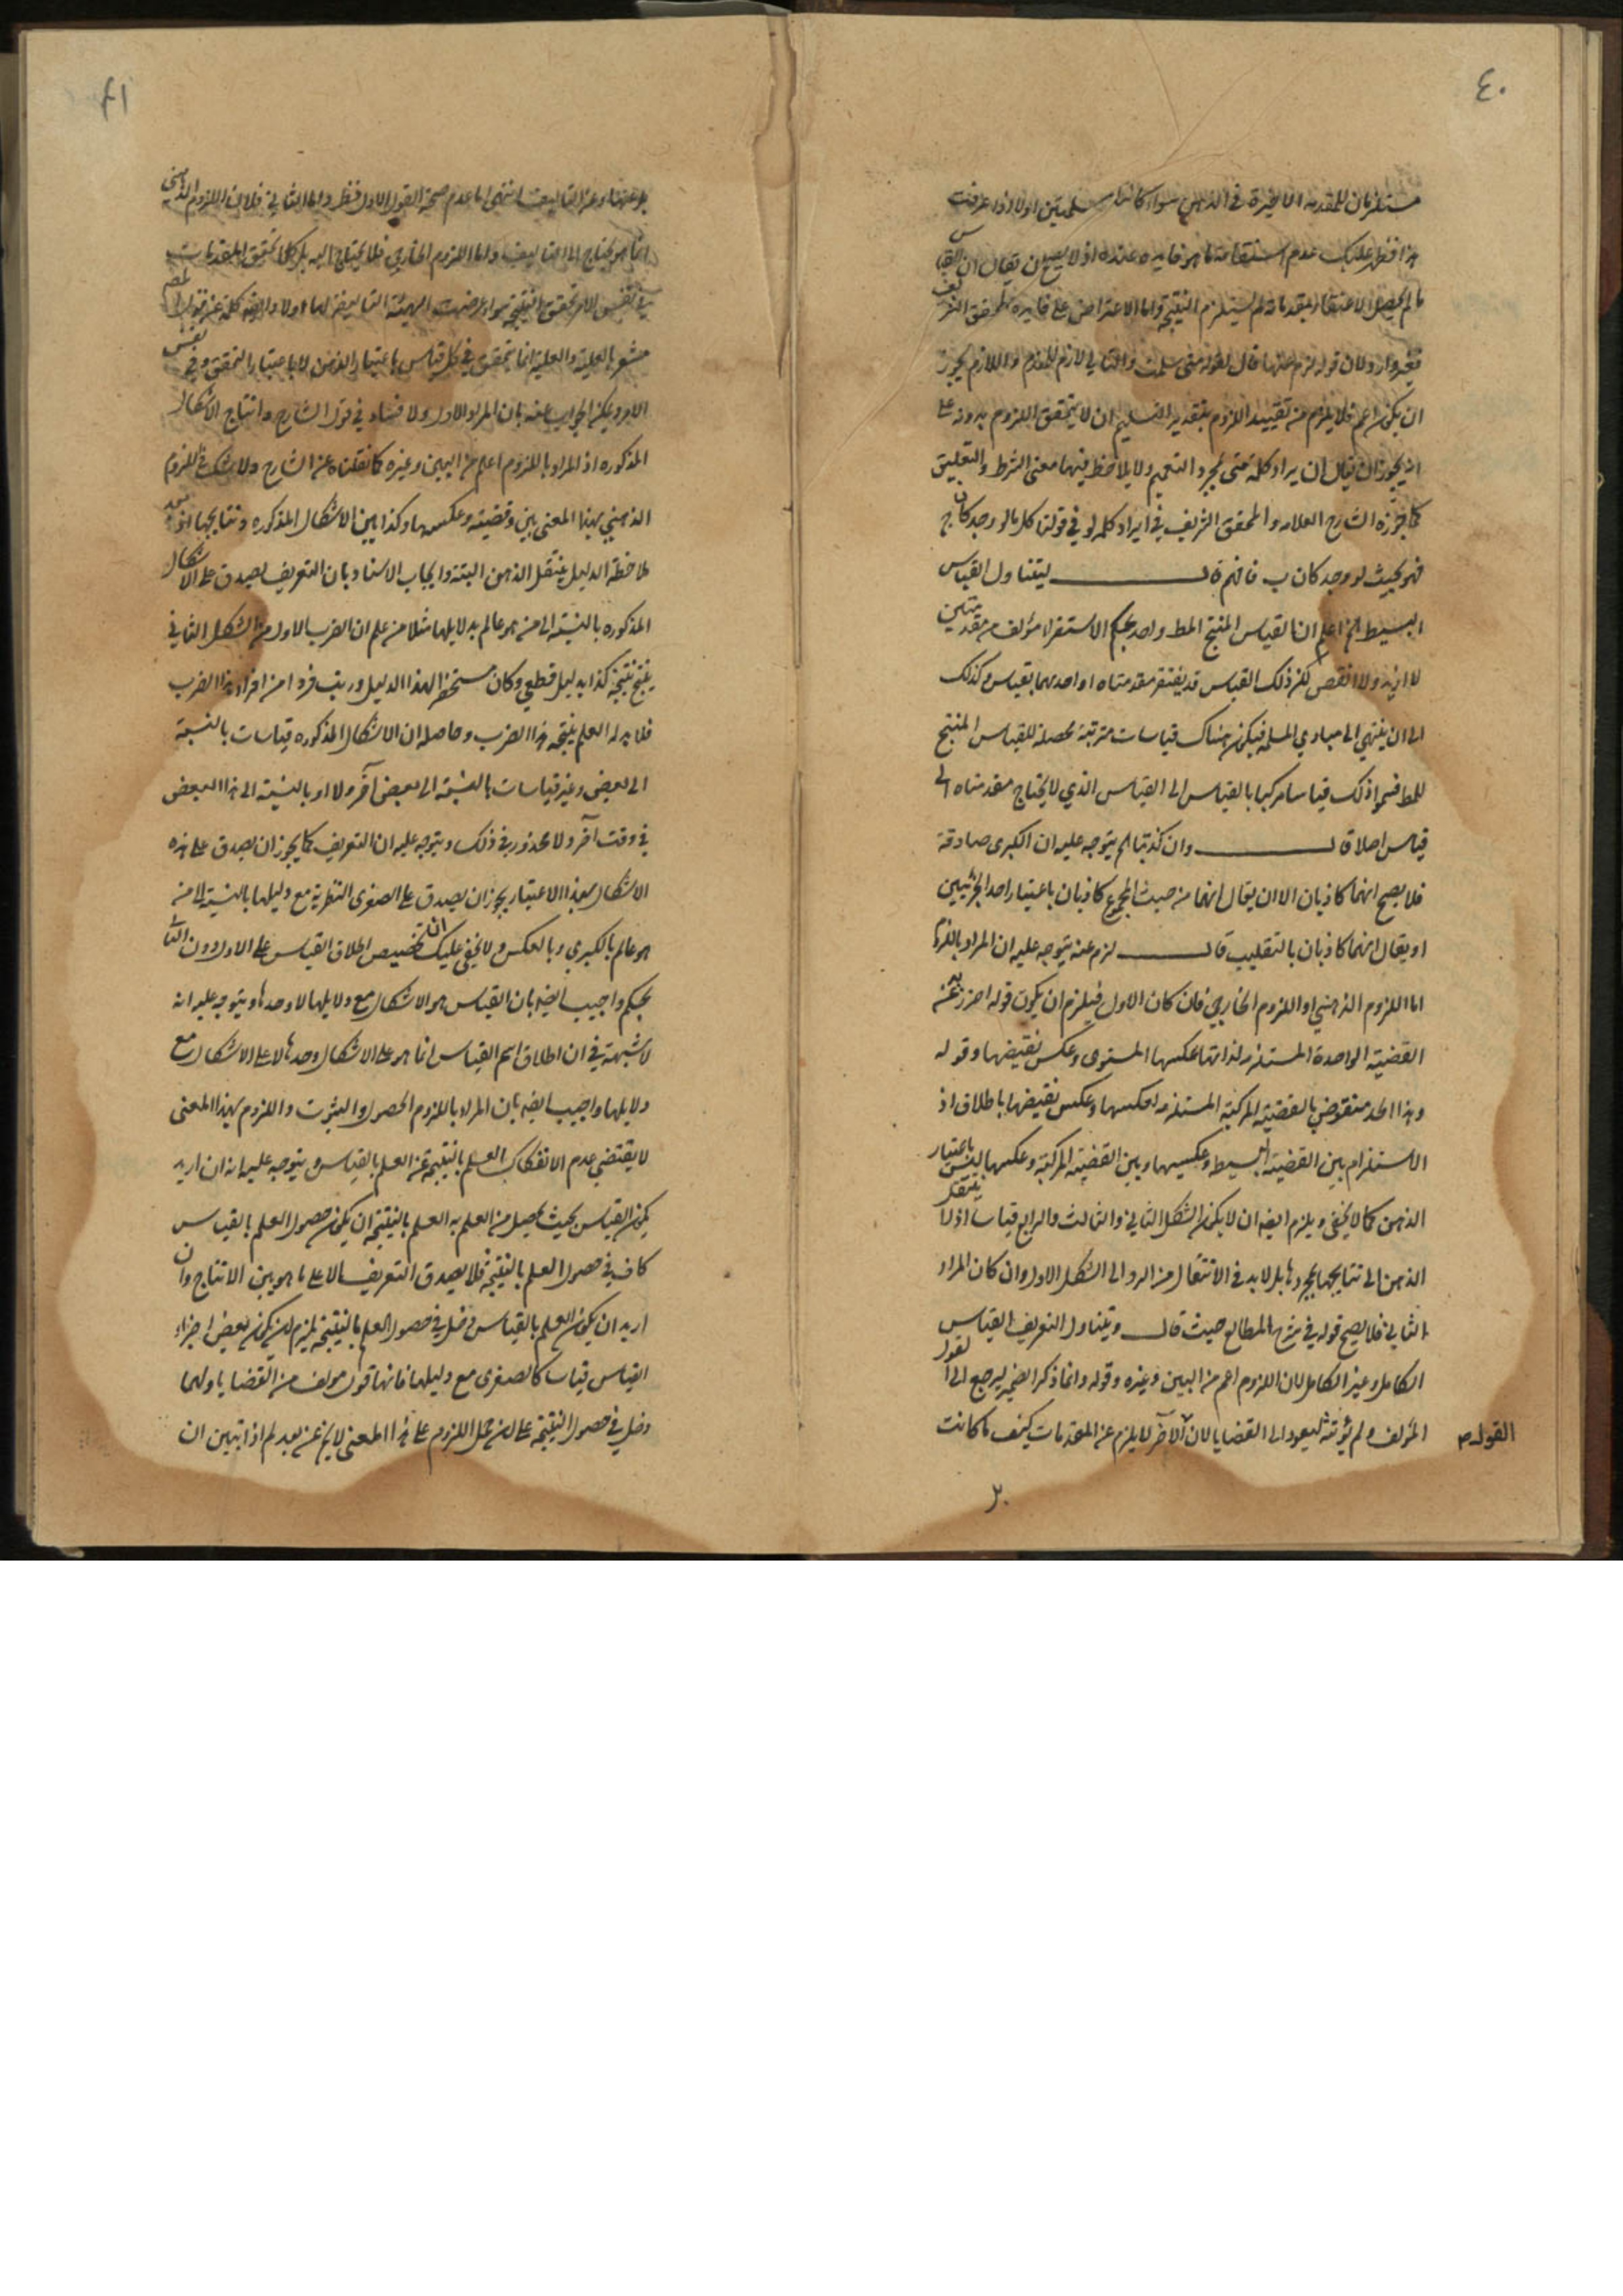 ٤٠
مستلزمان للمقدمة الاخيرة في الذهن سواء كانتا مسلمتين اولا اذا عرفت
هذا فظهر عليك عدم استقامة ما هو فايده عنده اذ لا يصح ان يقال ان القياس
ما لم يحصل الاعتقاد بمقدماته لم يستلزم النتيجة واما الاعتراض على فايده المحقق الشريف
فغير وارد لان قوله لزم عنها قال لقوله متى سلمت والتالي لازم للمقدم واللازم يجوز
ان يكون اعم فلا يلزم من تقييد اللزوم بتقدير التسليم ان لا يتحقق اللزوم بدونه على
انه يجوز ان يقال ان يراد كلمة متى بمجرد التعميم ولا يلاحظ فيها معنى الشرط والتعليق
كما جوزه الشارح العلامه والمحقق الشريف في ايراد كلمه لو في قولنا كل ما لو وجد كان ج
فهو بحيث لو وجد كان ب فافهم قال ليتناول القياس
البسيط الخ اعلم ان القياس المنتج المط واحد بحكم الاستقراء مؤلف من مقدمتين
لا ازيد ولا انقص لكن ذلك القياس قد يفتقر مقدمتاه او احديهما بقياس وكذلك
الى ان ينتهي الى مبادي المسلمه فيكون هناك قياسات مترتبة محصلة للقياس المنتج
للمط فسموا ذلك قياسا مركبا بالقياس الى القياس الذي لا يحتاج مقدمتاه الى
قياس اصلا قال وان كذبتا الخ يتوجه عليه ان الكبرى صادقة
فلا يصح انهما كاذبان الا ان يقال انهما من حيث المجموع كاذبان باعتبار احد الجزئيين
او يقال انهما كاذبان بالتغليب قال لزم عنه يتوجه عليه ان المراد باللزوم
اما اللزوم الذهني او اللزوم الخارجي فان كان الاول فيلزم ان يكون قوله احرز به عنه
القضية الواحدة المستلزمه لذاتها عكسها المستوى وعكس نقيضها وقوله
وهذا الحد منقوض بالقضية المركبة المستلزمه لعكسها وعكس نقيضها باطلاق اذ
الاستلزام بين القضية البسيط وعكسيهما وبين القضية المركبة وعكسها ليس باعتبار
الذهن كما لا يخفى ويلزم ايضه ان لا يكون الشكل الثاني والثالث والرابع قياسا اذ لا ينتقل
الذهن الى نتايجها بمجردها بل لا بد في الانتقال من الرد الى الشكل الاول وان كان المراد
الثاني فلا يصح قوله في شرح المطالع حيث قال ويتناول التعريف القياس
الكامل وغير الكامل لان اللزوم اعم من البين وغيره وقوله وانما ذكر الضمير ليرجع الى القول
المؤلف ولم يؤنثه ليعود الى القضايا لان الآخر لا يلزم عن المقدمات كيف ما كانت
القول م
٤١
انما هو يحتاج الى التاليف واما اللزوم الخارجي فلا يحتاج اليه بل كلما تحقق المقدمات
في نفس الامر تحقق النتيجة سواء عرضت الهيئة التاليفية لها اولا وايضه كلمة عن في قول المصه
مشعر بالعلية والعلية انما تتحقق في كل قياس باعتبار الذهن لا باعتبار التحقق وفي نفس
الامر ويمكن الجواب عنه بان المراد الاول ولا فساد في قول الشارح وانتاج الاشكال
المذكوره اذ المراد باللزوم اعم من البين وغيره كما نقلناه عن الشارح ولا شك في اللزوم
الذهني بهذا المعنى بين وقضيته وعكسها وكذا بين الاشكال المذكوره ونتايجها اذ بعد
ملاحظة الدليل ينتقل الذهن البتة وايجاب الاستاد بان التعريف يصدق على الاشكال
المذكوره بالنسبة الى من هو عالم بدلايلها مثلا من علم ان الضرب الاول من الشكل الثاني
ينتج نتيجة كذا بدليل قطعي وكان مستحضرا لهذا الدليل ورتب فردا من افراد هذا الضرب
فلا بد له العلم بنتيجة هذا الضرب وحاصله ان الاشكال المذكوره قياسات بالنسبة
الى بعض وغير قياسات بالنسبة الى بعض آخر ولا او بالنسبة الى هذا البعض
في وقت آخر ولا محذور في ذلك ويتوجه عليه ان التعريف كما يجوز ان يصدق على هذه
الاشكال بهذا الاعتبار يجوز ان يصدق على الصغرى النظرية مع دليلها بالنسبة الى من
هو عالم بالكبرى وبالعكس ولا يخفى عليك ان تخصيص اطلاق القياس على الاول دون الثاني
تحكم واجيب ايضه بان القياس هو الاشكال مع دلايلها لا وحدها ويتوجه عليه انه
لا شبهة في ان اطلاق اسم القياس انما هو على الاشكال وحدها لا على الاشكال مع
دلايلها واجيب ايضه بان المراد باللزوم الحصول والثبوت واللزوم بهذا المعنى
لا يقتضي عدم الانفكاك العلم بالنتيجة عن العلم بالقياس ويتوجه عليه انه ان اريد
بكون القياس بحيث يحصل من العلم به العلم بالنتيجة ان يكون حصول العلم بالقياس
كاف في حصول العلم بالنتيجة فلا يصدق التعريف الا على ما هو بين الانتاج وان
اريد ان يكون العلم بالقياس دخل في حصول العلم بالنتيجة يلزم ان يكون بعض اجزاء
القياس قياسا كالصغرى مع دليلها فانها قول مولف من القضايا ولهما
دخل في حصول النتيجة على ان حمل اللزوم على هذا المعنى لا يخ عن بعد لم اذا تبين ان